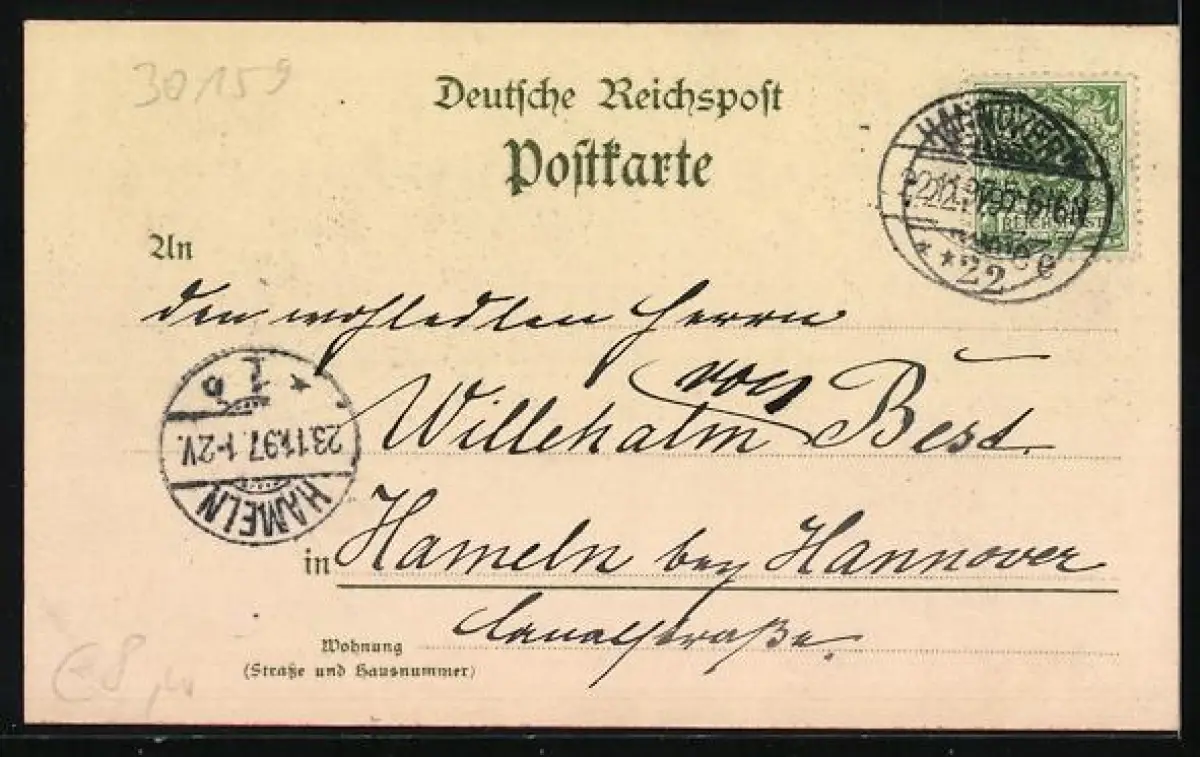 30159
Deutsche Reichspost
Postkarte
HANNOVER
22.11.97. 5-6 N
* 22
REICHSPOST
An
den wohledlen Herrn
von
Willehalm Best.
* 1 b
23.11.97. 1-2V.
HAMELN
in Hameln bey Hannover
Canalstraße.
Wohnung
(Straße und Hausnummer)